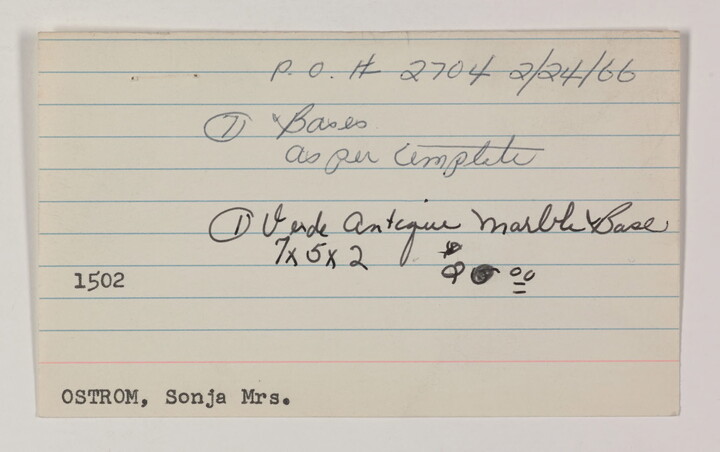 P.O. # 2704 2/24/66
(7) Bases
as per template
(1) Verde Antique Marble Base
7x5x2
00
1502
OSTROM, Sonja Mrs.